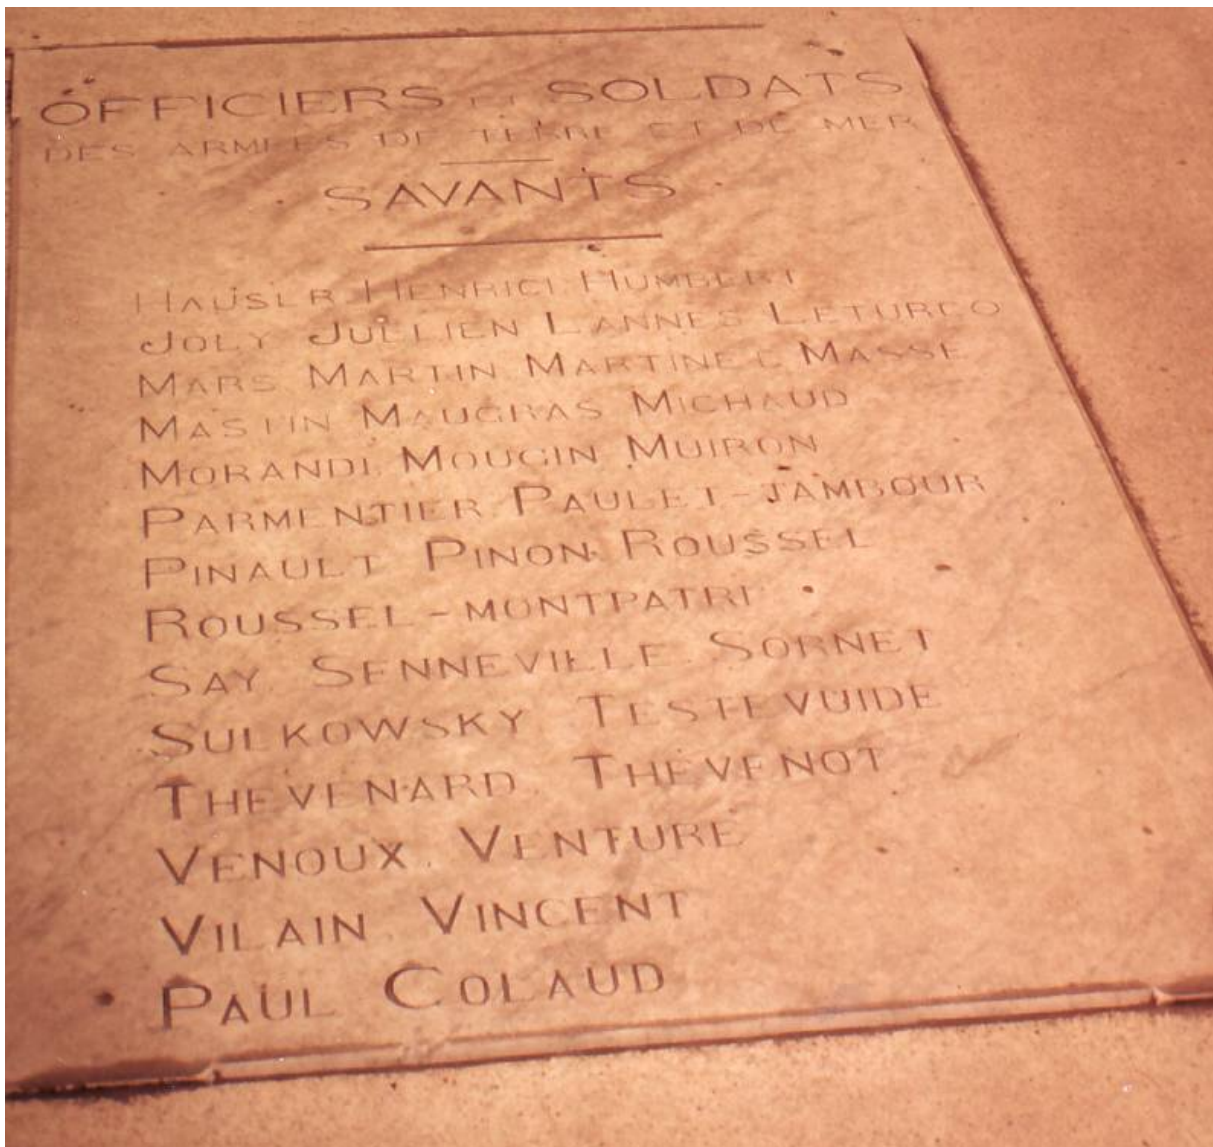 OFFICIERS ET SOLDATS
DES ARMEES DE TERRE ET DE MER
SAVANTS
HAUSLR HENRICI HUMBERT
JOLY JULLIEN LANNES LETURCQ
MARS MARTIN MARTINET MASSE
MASTIN MAUGRAS MICHAUD
MORANDI MOUGIN MUIRON
PARMENTIER PAULET-JAMBOUR
PINAULT PINON ROUSSEL
ROUSSEL-MONTPATRI
SAY SENNEVILLE SORNET
SULKOWSKY TESTEVUIDE
THEVENARD THEVENOT
VENOUX VENTURE
VILAIN VINCENT
PAUL COLAUD